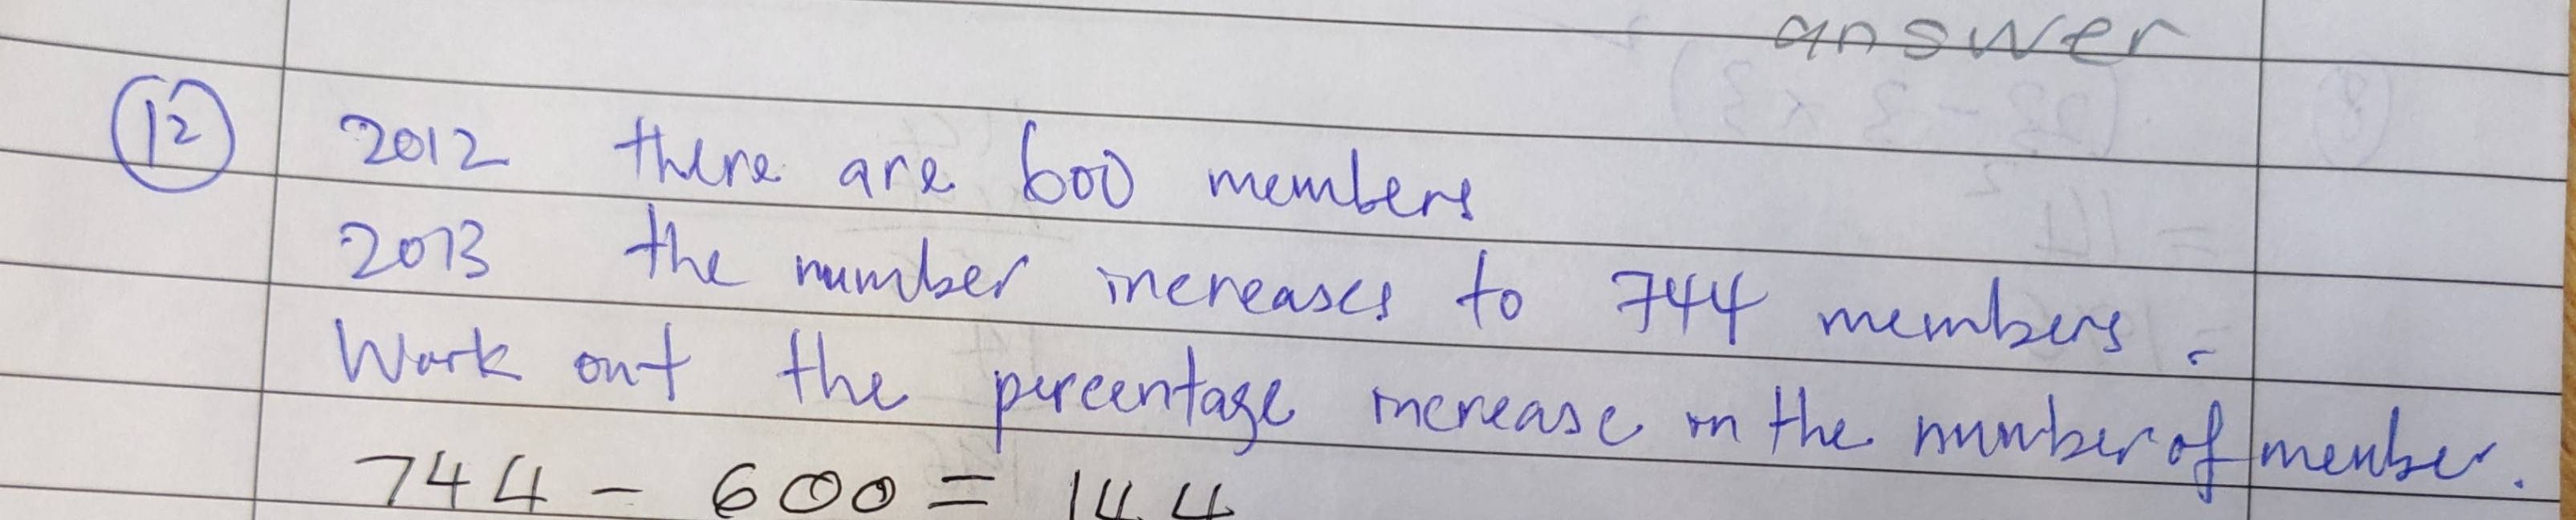 answer
12 2012 there are 600 members
2013 the number increases to 744 members.
Work out the percentage increase in the number of member.
744 - 600 = 144